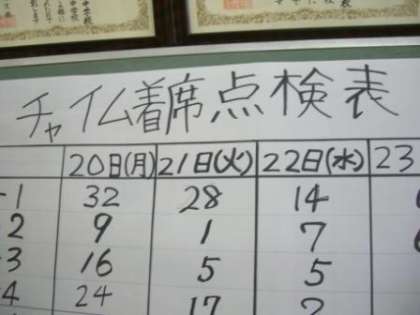 チャイム着席点検表
20日(月) 21日(火) 22日(水) 23
-1 32 28 14
-2 9 1 7
-3 16 5 5
-4 24 17